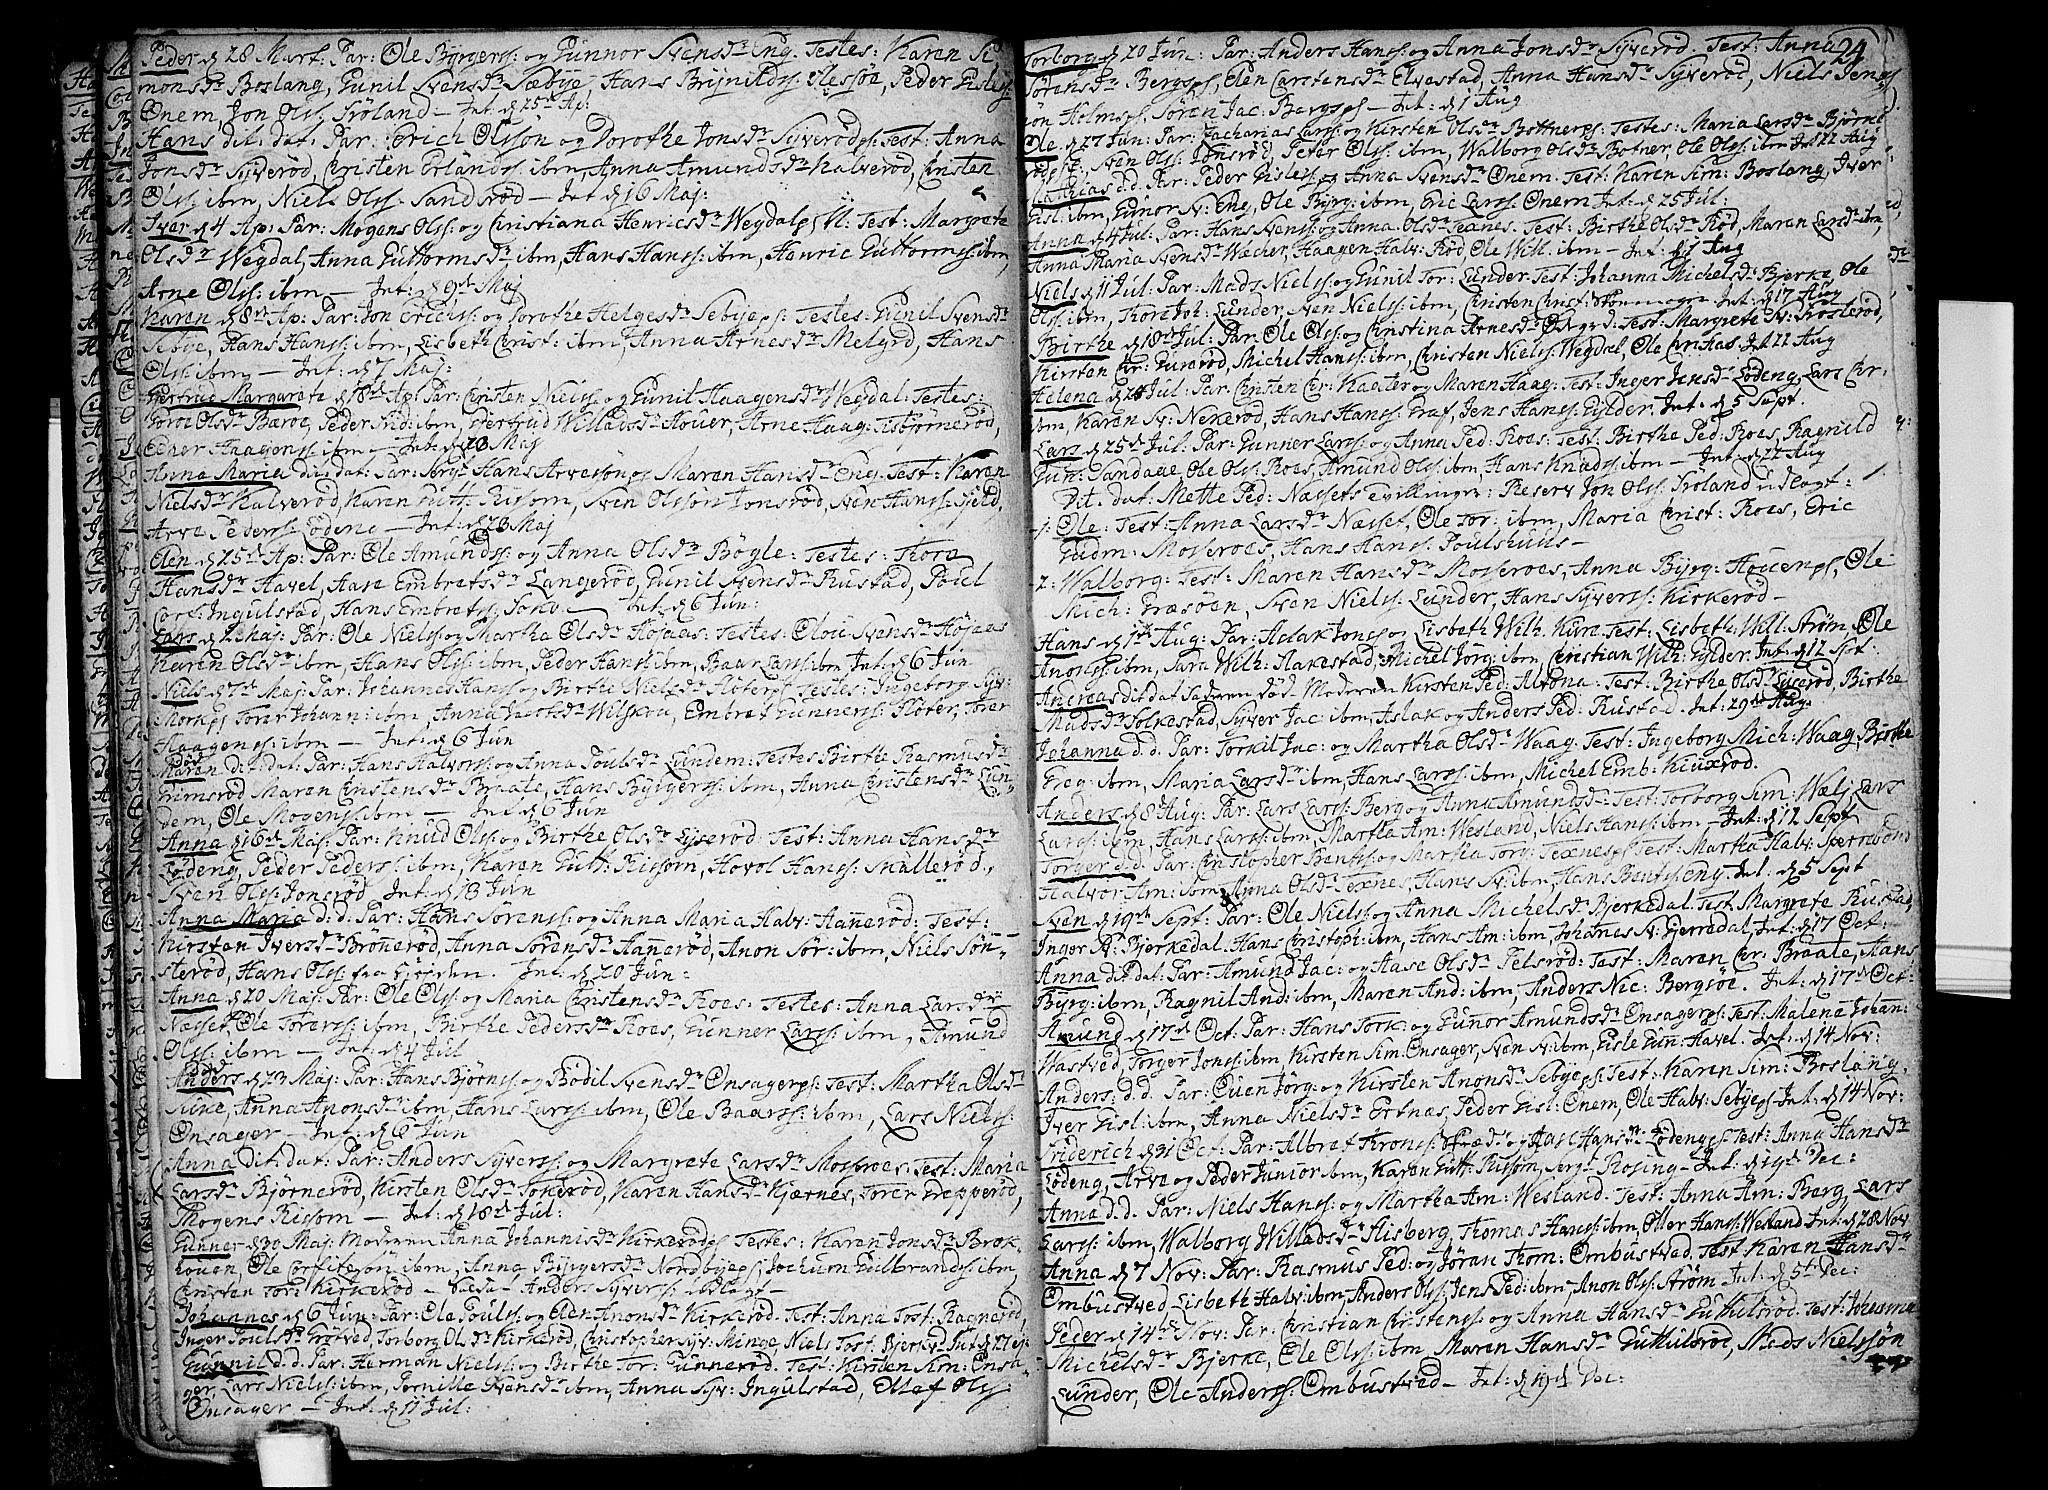 Peder d 28 Mart. Par: Ole Byrgerss: og Gunnor Svensdr Eng. Testes: Karen Si-
monsdr Boslang, Gunil Svensdr Sæbye, Hans Brynildss:, Peder Gisless:
Onem, Jon Olss: Fröland — Int: d 25de Ap:
Hans dit: dat: Par: Erich Olsson og Dorothe Jonsdr Syverödps: Test: Anna
Jonsdr Syveröd, Christen Erlandss: ibm, Anna Amundsdr Kalveröd, Christen
Olss: ibm, Niels Olss: Sandsröd — Int: d 16 Maj:
Iver d 4 Ap: Par: Mogens Olss: og Christiana Henricsdr Wegdalps: Test: Margrete
Olsdr Wegdal, Anna Guttormsdr ibm, Hans Hanss: ibm, Henric Guttormss: ibm,
Arne Olss: ibm — Int: d 9de Maj
Karen d 8de Ap: Par: Jon Ericss: og Dorothe Helgesdr Sebyeps: Testes: Gunil Svensdr
Sebye, Hans Hanss: ibm, Lisbeth Christ: ibm, Anna Arnesdr Melgrd, Hans
Olss: ibm — Int: d 7 Maj:
Gertrue Margarete d 18de Ap: Par: Christen Nielss: og Gunil Haagensdr Wegdal: Testes:
Goroe Olsdr Bæroe, Peder Nid: ibm, Gertrud Willadsdr Houer, Arne Haag: Tisbjörneröd,
Haagenss: ibm — Int: d 23 Maj
Anna Maria dit: dat: Par: Hans Arvesön og Maren Hansdr Eng: Test: Karen
Nielsdr Kalveröd, Karen Gutt: Rissom, Sven Olsson Jonsröd, Sven Hanss: Fjeld,
Arve Pederss: Lödeng — Int: d 23 Maj
Elen d 25de Ap: Par: Ole Amundss: og Anna Olsdr Bögle: Testes: Thora
Hansdr Havel, Aase Embretsdr Langeröd, Gunil Svensdr Rustad, Poul
Corf: Ingulstad, Hans Embretss: — Int: d 6 Jun:
Lars d 2 Maj: Par: Ole Nielss: og Martha Olsdr Höjaas: Testes: Olou Svensdr Höjaas
Karen Olsdr ibm, Hans Olss: ibm, Peder Hanss: ibm, Baar Larss: ibm Int: d 6 Jun
Niels d 7de Maj: Par: Johannes Hanss: og Birthe Nielsdr Flöterps: Testes: Ingeborg Syv:
Morkps Torer Johann: ibm, Anna Wilskou, Embret Gunnerss: Flöter, Arer
Haagenss: ibm — Int: d 6 Jun
död
Maren dit: dat: Par: Hans Halvorss: og Anna Poulsdr Lundem: Testes Birthe Rasmusdr
Grimsröd Maren Christensdr Braate, Hans Bÿrgerss: ibm, Anna Christensdr Lun-
dem, Ole Mogenss: ibm — Int: d 6 Jun
Anna d 16de Maj: Par: Knud Olss: og Birthe Olsdr Lyseröd: Test: Anna Hansdr
Lödeng, Peder Pederss: ibm, Karen Gutt: Rissom, Hovol Hanss: Skalleröd,
Sven Olss: Jonsröd Int: d 13 Jun
Anna Maria d: d: Par: Hans Sörenss: og Anna Maria Halv: Hanneröd: Test:
Kirsten Iversdr Brönneröd, Anna Sörensdr Haneröd, Anon Sör: ibm, Niels Sön-
steröd, Hans Olss: fra Fjorden. Int: d 20 Jun:
Anna d 20 Maj: Par: Ole Olss: og Maria Christensdr Roes: Testes: Anna Larsdr
Næsset, Ole Torerss: ibm, Birthe Pedersdr Roes, Gunner Larss: ibm, Amund
Olss: ibm — Int: d 4 Jul
död
Anders d 23 Maj: Par: Hans Björnss: og Bödil Svensdr Onsagerps: Test: Martha Olsdr
Siike, Anna Anonsdr ibm, Hans Larss: ibm, Ole Baarss: ibm, Lars Nielss:
Onsager — Int: d 6 Jun
Anna dit: dat: Par: Anders Syverss: og Margrete Larsdr Mosseroes: Test: Maria
Larsdr Björneröd, Kirsten Olsdr Tokeröd, Karen Hansdr Kjærnes, Torer Trapperöd,
Mogens Rissom — Int: d 18de Jul:
Gunner d 30 Maj: Moderen Anna Johannisdr Kirkerödps Testes: Karen Jonsdr Bræk-
Ole Corfitzsön ibm, Anna Byrgersdr Nordbyeps, Jochum Gulbrandss: ibm,
Christen Tor: Kirkeröd — Anders Syverss: udlagt —
Johannes d 6 Jun: Par: Ole Poulss: og Elen Anonsdr Kirkeröd. Test: Anna Tost: Ragneröd,
Inger Poulsdr Grotved, Torborg Olsdr Kirkeröd, Christopher Syv: Minge, Niels Tost: Int: d 27
Gunnil d. d. Par: Herman Nielss: og Birthe Tor: Gunneröd. Test: Kirsten Sim: Onsa-
ger, Lars Nielss: ibm, Pernille Svensdr ibm, Anna Syv: Ingulstad, Ellef Olss:
Onsager — Int: d 11 Jul:
24
Torborg d 20 Jun: Par: Anders Hanss: og Anna Jonsdr Syveröd. Test: Anna
Sörensdr Bergsps, Elen Carstensdr Elvestad, Anna Hansdr Syveröd, Niels Jens-
sön Holmsps Sören Jac: Bergsps — Int: d 1 Aug
Ole d 27 Jun: Par: Zacharias Larss: og Kirsten Olsdr Bottnerps: Testes: Maria Larsdr Björne
rödps, Sven Olss: Jonsröd, Peter Olss: ibm, Walborg Olsdr Botner, Ole Olss: ibm Int. d 22 Aug
Mathias d.d. Par: Peder Gisless: og Anna Svensdr Onem. Test: Karen Sim: Boslang, Iver
Gisl: ibm, Gunor Sv: Eng, Ole Byrg: ibm, Eric Larss: Onem Int: d 25 Jul:
Anna d 4 Jul: Par: Hans Svenss: og Anna Olsdr Texnes. Test: Birthe Olsdr Röd, Maren Larsdr ibm,
Anna Maria Svensdr Wacher, Haagen Halv: Röd, Ole Wilh: ibm — Int: d 1 Aug
Niels d 11 Jul: Par: Mads Nielss: og Gunil Tor: Lunder. Test Johanna Michelsdr Bjerke, Ole
Olss: ibm, Thore Joh: Lunder, Sven Nielss: ibm, Christen Christ: Int: d 17 Aug
Birthe d 18de Jul: Par: Ole Olss: og Christina Arnesdr Test: Margrete Sv: Rosleröd,
Kirsten Chr: Gunröd, Michel Hanss: ibm, Christen Nielss: Wegdal, Ole Christ: Int: 22 Aug
Helena d Jul: Par: Christen Chr: Kaater og Maren Haag: Test: Inger Jensdr Lödeng, Lars Chr:
ibm, Karen Sv: Nekeröd, Hans Hanss: Graf, Jens Hanss: Gylder. Int: d 5 Sept.
Lars d 25de Jul: Par: Gunner Larss: og Anna Ped: Roes: Test: Birthe Ped: Roes, Ragnild
Gun: Sandage, Ole Olss: Roes, Amund Olss: ibm, Hans Knudss: ibm — Int: d 22 Aug
Dit: dat: Mette Ped: Næssets tvillinger: Reserv Jon Olss: Fröland udlagt:
1: Ole: Test: Anna Larsdr Næsset, Ole Tor: ibm, Maria Christ: Roes, Eric
Gudm: Mosseroes, Hans Hanss: Poulshuus —
2: Walborg: Test: Maren Hansdr Mosseroes, Anna Byrg: Houenps, Ole
Mich: Græsöen, Sven Nielss: Lunder, Hans Syverss: Kirkeröd —
Hans d 1ste Aug: Par: Aslak Jonss: og Lisbeth Wilh: Kure. Test: Lisbeth Will: Ström, Ole
Anonss: ibm, Sara Wilh: Hakestad, Michel Jörg: ibm, Christian Wilh: Gylder. Int: d 12 Spt:
Andreas dit dat Faderen död — Moderen Kirsten Ped: Altona. Test: Birthe Olsdr Lyseröd, Birthe
Madsdr Folkestad, Syver Jac: ibm, Aslak og Anders Ped: Rustad. Int: 29de Aug.
Johanna d. d. Par: Torkil Jac: og Martha Olsdr Waag. Test: Ingeborg Mich: Waag, Birthe
Greg: ibm, Maria Larsdr ibm, Hans Larss: ibm, Michel Emb: Kiuxröd.
Anders d 8 Aug: Par: Lars Larss: Berg og Anna Amundsdr Test: Torborg Sim: Wælj, Lars
Larss: ibm, Hans Larss: ibm, Martha Am: Wesland, Niels Hanss: ibm — Int: d 12 Sept
Torger d.d. Par: Christopher Bentss: og Martha Torg: Texnesps Test: Martha Halv:
Halvor Am: ibm, Anna Olsdr Texnes, Hans Sv: ibm, Hans Bentss: Eng. Int: d 5 Sept
Sven d 19de Sept: Par: Ole Nielss: og Anna Michelsdr Bjerkedal. Test Margrete Rustad,
Inger Sv: Bjerkedal. Hans Christoph: ibm, Hans Am: ibm, Johanes Sv: Bjerkedal, Int: d 17 Oct:
Anna dit dat: Par: Amund Jac: og Aase Olsdr Pelsröd: Test: Maren Chr: Braate, Hans
Byrg: ibm, Ragnil And: ibm, Maren And: ibm, Anders Nic: Bergsöe. Int: d 17de Oct:
Amund d 17de Oct. Par: Hans Tork: og Gunnor Amundsdr Onsagerps: Test: Malena Johan:
Wastved, Torger Jonss: ibm, Kirsten Sim: Onsager, Sven Sv: ibm, Gisle Gun: Havel. Int: d 14 Nov:
Anders: d. d. Par: Ouen Jörg: og Kirsten Anonsdr Sebyeps: Test: Karen Sim: Boslang,
Iver Gisl: ibm, Anna Nielsdr Ertnæs, Peder Gisl: Onem, Ole Halv: Sebyeps Int: d 14 Nov:
Friderich d 31 Oct: Par: Albret Krons: og Aase Hansdr Lödengps Test: Anna Hansdr
Lödeng, Arve og Peder Junior ibm, Karen Gutt: Rissom, Rosing — Int: d 19de Dec:
Anna d. d. Par: Niels Hanss: og Martha Am: Wesland. Test: Anna Am: Berg, Lars
Larss: ibm, Walborg Willadsdr Flisberg, Thomas Hanss: ibm, Oller Hanss: Wesland Int: d 28 Nov
Anna d 7 Nov: Par: Rasmus Ped: og Jöran Thom: Ombustved. Test Karen Hansdr
Ombustved Lisbeth Halv: ibm, Anders Olss: Jens Ped: ibm, Anon Olss: Ström Int: d 5te Dec:
Peder d 14de Nov: Par: Christian Christenss: og Anna Hansdr Guthulsröd. Test: Johanna
Michelsdr Bjerke, Ole Olss: ibm, Maren Hansdr Guthulsröd, Mads Nielssön
Lunder, Ole Anderss: Ombustved — Int: d 19de Dec: